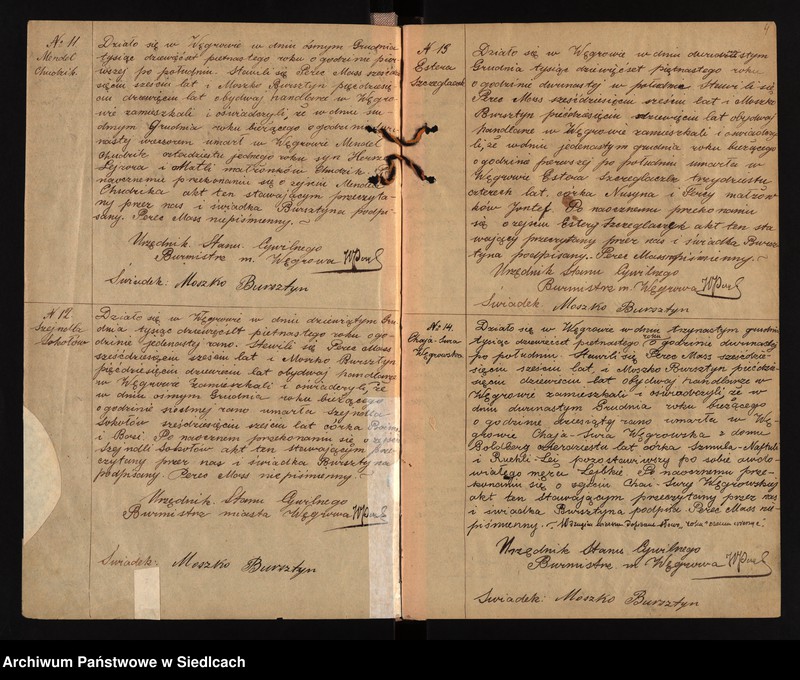 No 11
Mendel
Chudzik.
Działo się w Węgrowie w dniu ósmym Grudnia
tysiąc dziewięćset piętnastego roku o godzinie pier
wszej po południu. Stawili się Perec Mass sześćdzie
sięciu sześciu lat i Moszko Bursztyn pięćdziesię
ciu dziewięciu lat obydwaj handlarze w Węgro
wie zamieszkali i oświadczyli, że w dniu siu
dmym Grudnia roku bieżącego o godzinie
nastej wieczorem umarł w Węgrowie Mendel
Chudzik czterdziestu jednego roku syn
Lejzora i Matli małżonków Chudzik
naocznemu przekonaniu się o zejściu Mendela
Chudzika akt ten stawającym przeczyta
ny przez nas i świadka Bursztyna podpi
sany. Perec Mass niepiśmienny.
Urzędnik Stanu Cywilnego
Burmistrz m. Węgrowa
Świadek: Moszko Bursztyn
N 12.
Szejndla
Sokołów
Działo się w Węgrowie w dniu dziewiątym Gru
dnia tysiąc dziewięćset piętnastego roku o go
dzinie jedenastej rano. Stawili się Perec Mass
sześćdziesięciu sześciu lat i Moszko Bursztyn
pięćdziesięciu dziewięciu lat obydwaj handlarze
w Węgrowie zamieszkali i oświadczyli, że
w dniu ósmym Grudnia roku bieżącego
o godzinie siódmej rano umarła Szejndla
Sokołów sześćdziesięciu sześciu lat córka
i Bosi. Po naocznem przekonaniu się o zejściu
Szejndli Sokołów akt ten stawającym prze
czytany przez nas i świadka Bursztyna
podpisany. Perec Mass niepiśmienny.
Urzędnik Stanu Cywilnego
Burmistrz miasta Węgrowa
Świadek: Moszko Bursztyn
4
N 13
Estera
Szczeglacek
Działo się w Węgrowie w dniu dwunastym
Grudnia tysiąc dziewięćset piętnastego roku
o godzinie dwunastej w południe Stawili się
Perec Mass sześćdziesięciu sześciu lat i Moszko
Bursztyn pięćdziesięciu dziewięciu lat obydwaj
handlarze w Węgrowie zamieszkali i oświadczy
li, że w dniu jedenastym grudnia roku bieżącego
o godzinie pierwszej po południu umarła w
Węgrowie Estera Szczeglacek trzydziestu
czterech lat, córka Nusyna i małżon
ków Jontef. Po naocznemu przekonaniu
się o zejściu Estery Szczeglacek akt ten sta
wający przeczytany przez nas i świadka Bursz
tyna podpisany. Perec Mass niepiśmienny.
Urzędnik Stanu Cywilnego
Burmistrz m. Węgrowa
Świadek: Moszko Bursztyn
No 14.
Chaja-Sura
Węgrowska
Działo się w Węgrowie w dniu trzynastym grudnia
tysiąc dziewięćset piętnastego roku o godzinie dwunastej
po południu. Stawili się Perec Mass sześćdzie
sięciu sześciu lat, i Moszko Bursztyn pięćdzie
sięciu dziewięciu lat obydwaj handlarze w
Węgrowie zamieszkali i oświadczyli, że w
dniu dwunastym Grudnia roku bieżącego
o godzinie dziesiątej rano umarła w Wę
growie Chaja-Sura Węgrowska z domu
Goldberg lat córka Szmula-Naftali
i Ruchli-Lei pozostawiwszy po sobie owdo
wiałego męża Po naocznemu prze
konaniu się o zejściu Chai-Sury Węgrowskiej
akt ten stawającym przeczytany przez nas
i świadka Bursztyna podpisa Perec Mass nie
piśmienny.
Urzędnik Stanu Cywilnego
Burmistrz m Węgrowa
Świadek: Moszko Bursztyn
Archiwum Państwowe w Siedlcach